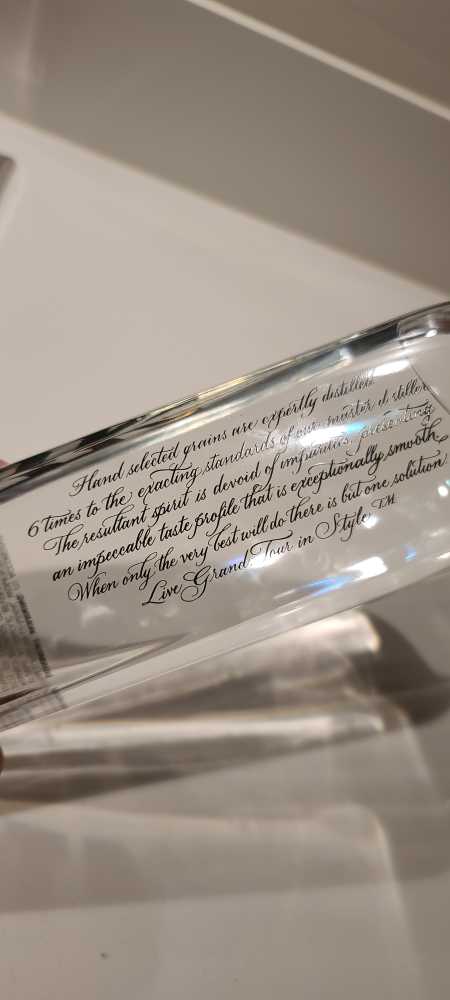 Hand selected grains are expertly distilled
6 times to the exacting standards of our master distiller.
The resultant spirit is devoid of impurities, presenting
an impeccable taste profile that is exceptionally smooth.
When only the very best will do there is but one solution!
Live Grand Tour in Style ™